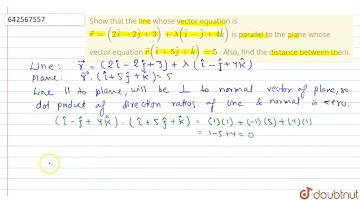 642567557
Show that the line whose vector equation is
r⃗ = (2î − 2ĵ + 3) + λ(î − ĵ + 4k̂) is parallel to the plane whose
vector equation r⃗(î + 5ĵ + k̂) = 5 . Also, find the distance between them.
Line: r⃗ = (2î − 2ĵ + 3) + λ(î − ĵ + 4k̂)
Plane: r⃗.(î + 5ĵ + k̂) = 5
Line ∥ to plane, will be ⊥ to normal vector of plane, so
dot product of direction ratios of line & normal is zero.
(î − ĵ + 4k̂) . (î + 5ĵ + k̂) = (1)(1) + (-1)(5) + (4)(1)
= 1 - 5 + 4 = 0
doubtnut